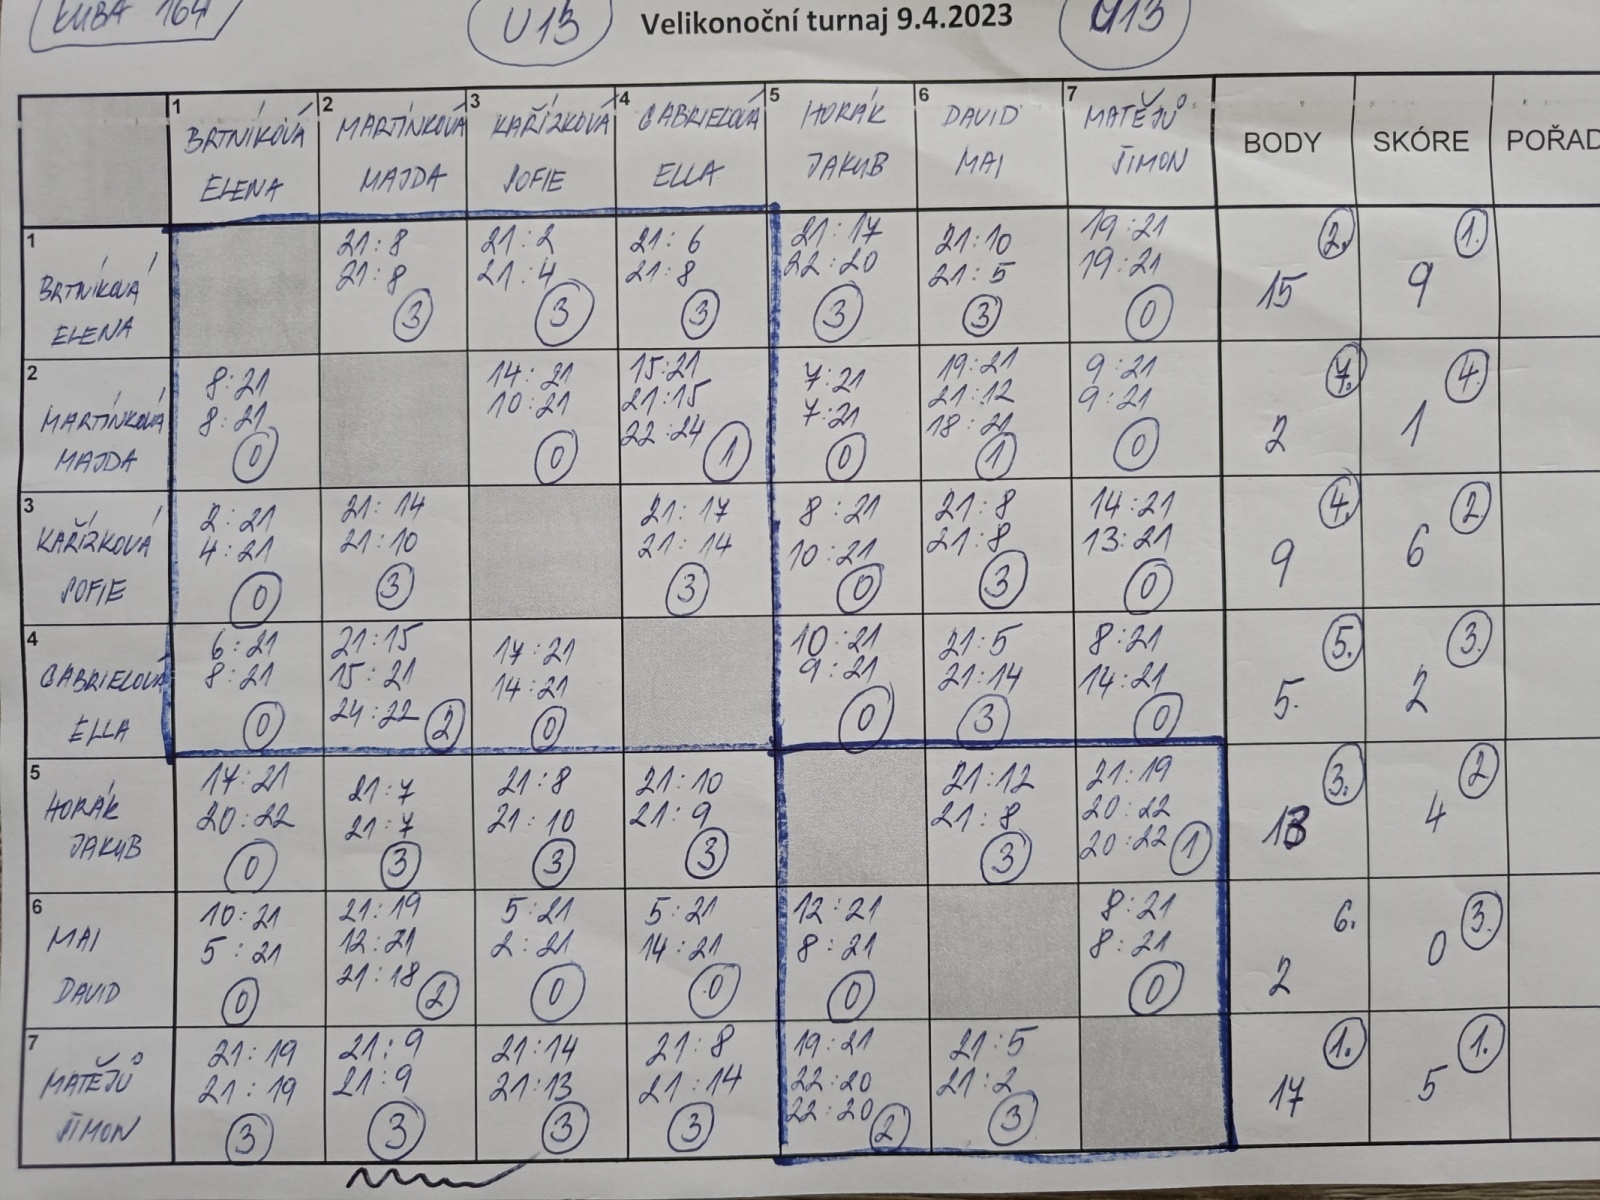 KUBA 164
U13
Velikonoční turnaj 9.4.2023
U13
1 BRTNÍKOVÁ ELENA
2 MARTÍNKOVÁ MAJDA
3 KAŘÍZKOVÁ SOFIE
4 GABRIELOVÁ ELLA
5 HORÁK JAKUB
6 DAVID MAI
7 MATĚJŮ ŠIMON
BODY
SKÓRE
POŘAD
1 BRTNÍKOVÁ ELENA
21:8 21:8 3
21:2 21:4 3
21:6 21:8 3
21:17 22:20 3
21:10 21:5 3
19:21 19:21 0
15 2.
9 1.
2 MARTÍNKOVÁ MAJDA
8:21 8:21 0
14:21 10:21 0
15:21 21:15 22:24 1
7:21 7:21 0
19:21 21:12 18:21 1
9:21 9:21 0
2 7.
1 4.
3 KAŘÍZKOVÁ SOFIE
2:21 4:21 0
21:14 21:10 3
21:17 21:14 3
8:21 10:21 0
21:8 21:8 3
14:21 13:21 0
9 4.
6 2
4 GABRIELOVÁ ELLA
6:21 8:21 0
21:15 15:21 24:22 2
17:21 14:21 0
10:21 9:21 0
21:5 21:14 3
8:21 14:21 0
5. 5.
2 3.
5 HORÁK JAKUB
17:21 20:22 0
21:7 21:7 3
21:8 21:10 3
21:10 21:9 3
21:12 21:8 3
21:19 20:22 20:22 1
13 3.
4 2
6 MAI DAVID
10:21 5:21 0
21:19 12:21 21:18 2
5:21 2:21 0
5:21 14:21 0
12:21 8:21 0
8:21 8:21 0
2 6.
0 3.
7 MATĚJŮ ŠIMON
21:19 21:19 3
21:9 21:9 3
21:14 21:13 3
21:8 21:14 3
19:21 22:20 22:20 2
21:5 21:2 3
17 1.
5 1.